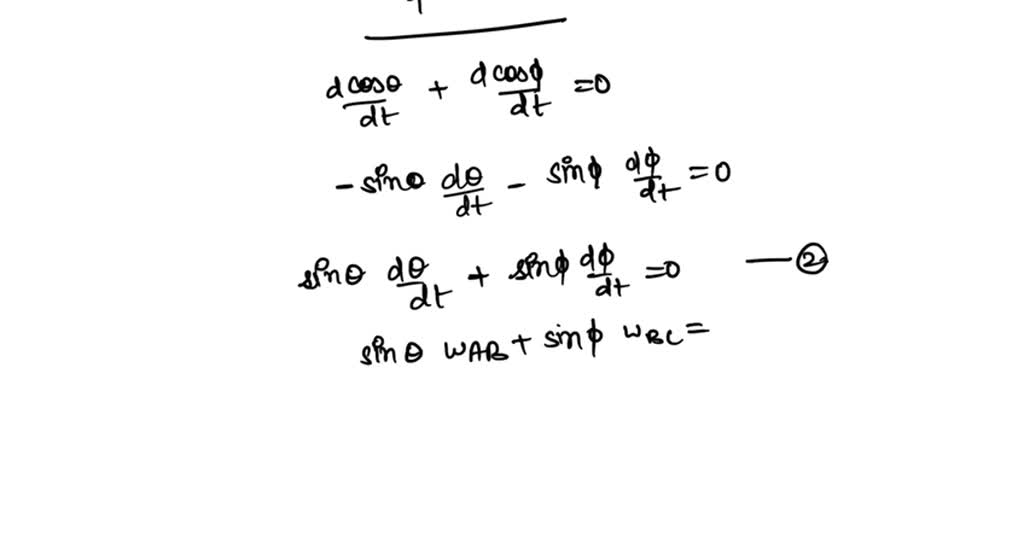 dcosθ/dt + dcosϕ/dt =0
- sinθ dθ/dt - sinϕ dϕ/dt =0
sinθ dθ/dt + sinϕ dϕ/dt =0 — ②
sinθ ωAB + sinϕ ωBC =